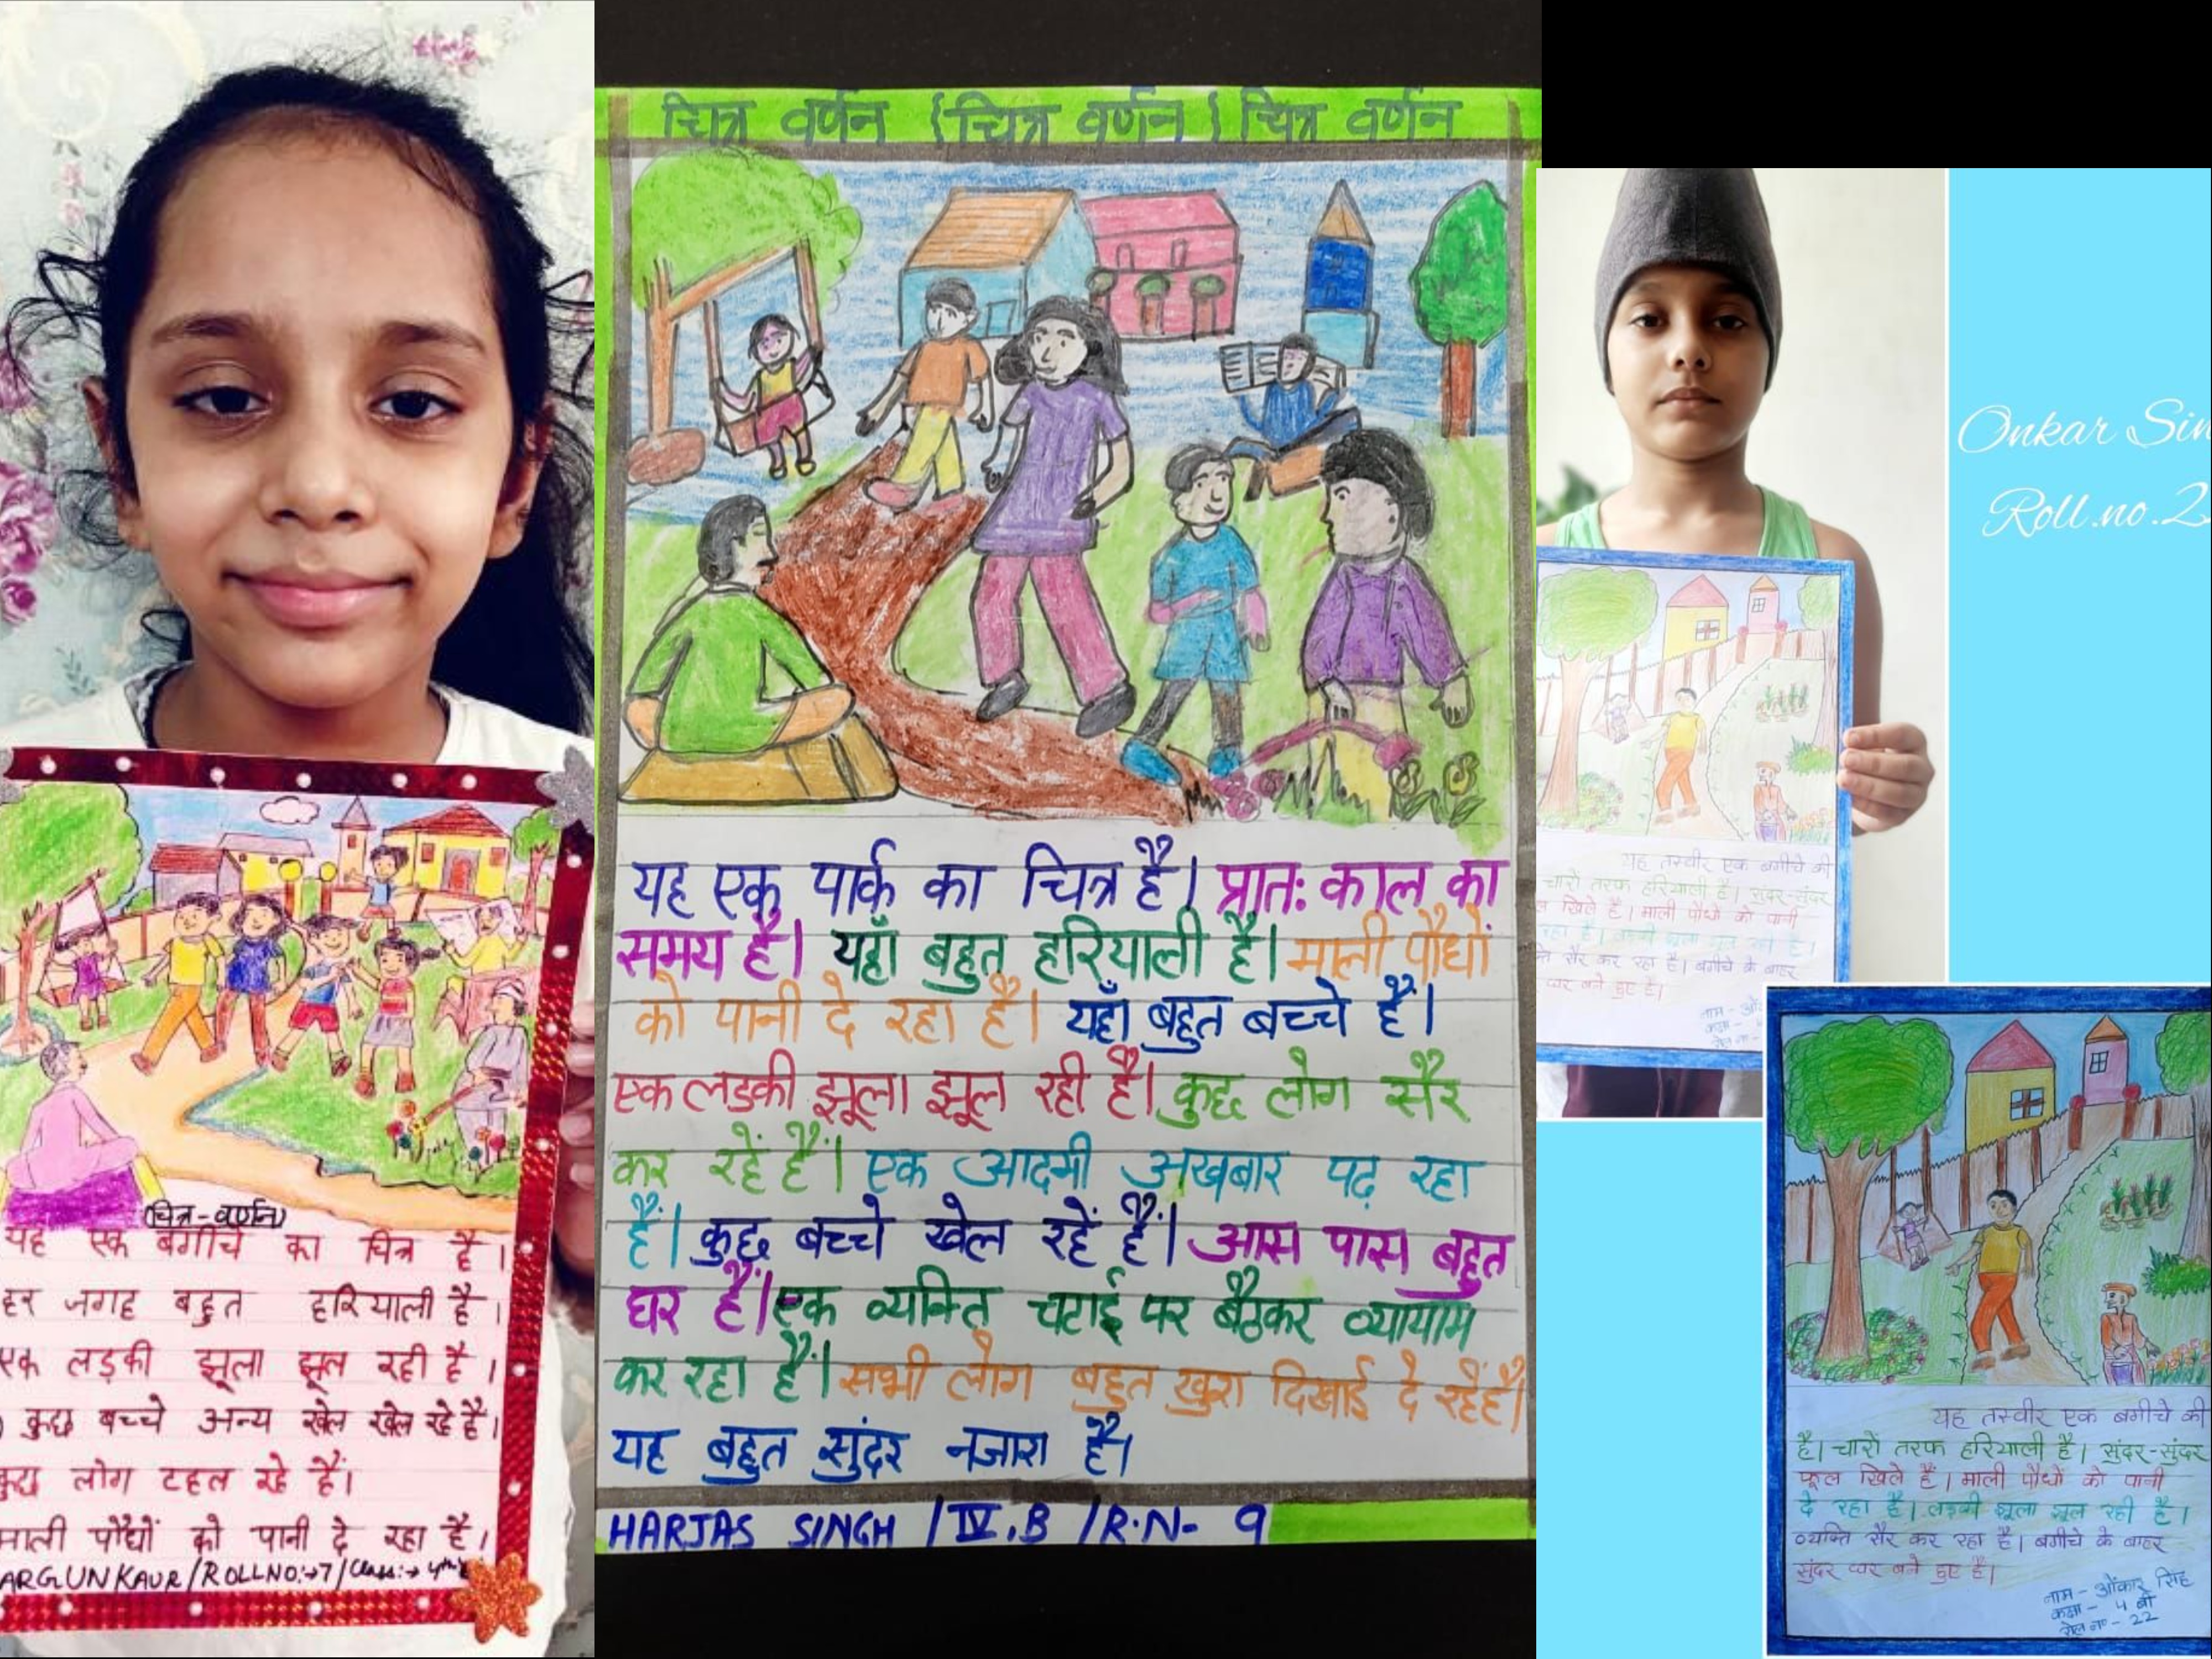 चित्र वर्णन {चित्र वर्णन} चित्र वर्णन
यह एक पार्क का चित्र है। प्रातः काल का
समय है। यहाँ बहुत हरियाली है। माली पौधों
को पानी दे रहा है। यहाँ बहुत बच्चे हैं।
एक लडकी झूला झूल रही है। कुछ लोग सैर
कर रहें हैं। एक आदमी अखबार पढ़ रहा
हैं। कुछ बच्चे खेल रहें हैं। आस पास बहुत
घर हैं। एक व्यक्ति चटाई पर बैठकर व्यायाम
कर रहा हैं। सभी लोग बहुत खुश दिखाई दे रहेंहैं।
यह बहुत सुंदर नजारा है।
HARJAS SINGH / IV.B / R.N- 9
(चित्र-वर्णन)
यह एक बगीचे का चित्र है।
हर जगह बहुत हरियाली है।
एक लड़की झूला झूल रही है।
कुछ बच्चे अन्य खेल खेल रहे हैं।
कुछ लोग टहल रहे हैं।
माली पौधों को पानी दे रहा है।
ARGUN KAUR/ROLLNO:→7/Class:→4th
Onkar Sin
Roll.no.2
यह तस्वीर एक बगीचे की
चारों तरफ हरियाली है। सुंदर-सुंदर
खिले हैं। माली पौधों को पानी
रहा है। लड़की झूला झूल रही है।
सैर कर रहा है। बगीचे के बाहर
घर बने हुए हैं।
नाम -
कक्षा -
रोल न॰ -
यह तस्वीर एक बगीचे की
है। चारों तरफ हरियाली है। सुंदर-सुंदर
फूल खिले हैं। माली पौधों को पानी
दे रहा है। लड़की झूला झूल रही है।
व्यक्ति सैर कर रहा है। बगीचे के बाहर
सुंदर घर बने हुए हैं।
नाम - ओंकार सिंह
कक्षा - 4 बी
रोल न॰ - 22